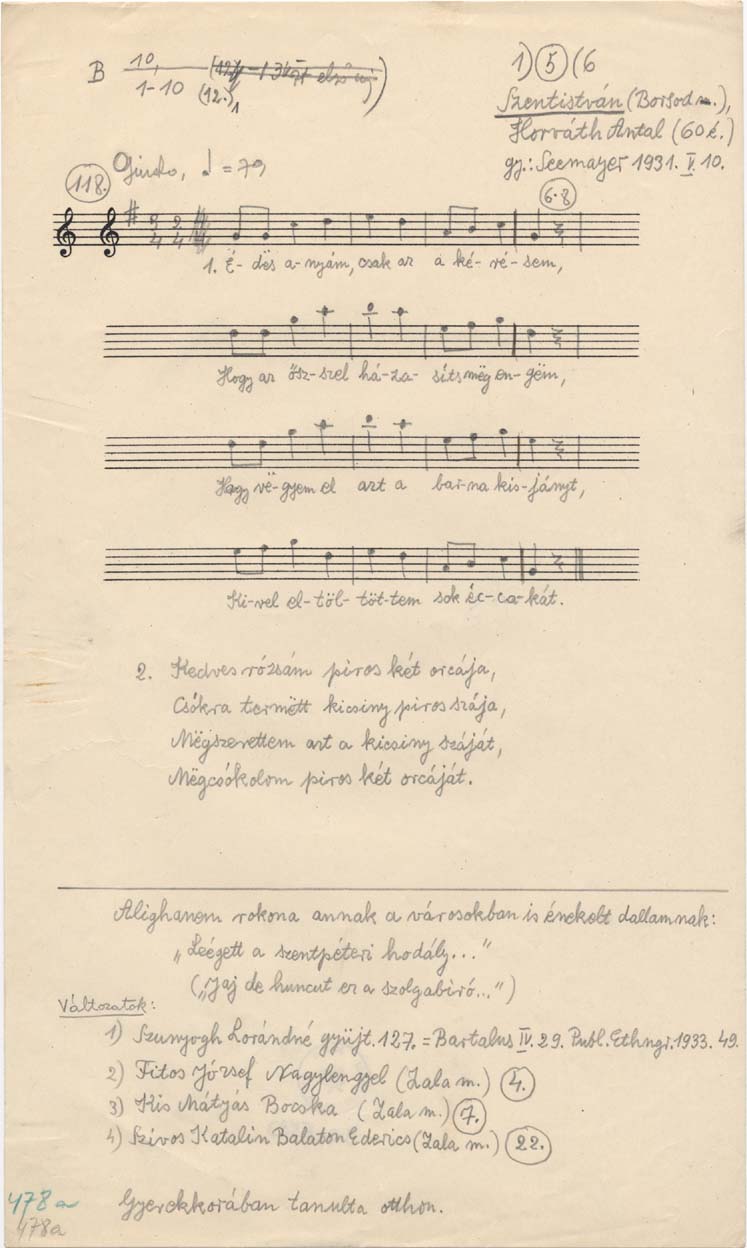 B 10, / 1-10 (12.)
1) 5 (6
Szentistván (Borsod m.),
Horváth Antal (60 é.)
gy.: Seemayer 1931. V. 10.
118. Giusto, ♩ = 79
6-8
3 2
4 4
1. É- dës a- nyám, csak az a ké- ré- sem,
Hogy az ősz- szel há- za- síts mëg en- gëm,
Hogy vë- gyem el azt a bar- na kis- jányt,
Ki- vel el- töl- töt- tem sok éc- ca- kát.
2. Kedves rózsám piros két orcája,
Csókra termëtt kicsiny piros szája,
Mëgszerettem azt a kicsiny száját,
Mëgcsókolom piros két orcáját.
Alighanem rokona annak a városokban is énekelt dallamnak:
„Leégett a szentpéteri hodály..."
(„Jaj de huncut ez a szolgabiró...")
Változatok:
1) Szunyogh Lorándné gyüjt. 127. = Bartalus IV. 29. Publ. Ethngr. 1933. 49.
2) Fitos József Nagylengyel (Zala m.) 4.
3) Kis Mátyás Bocska (Zala m.) 7.
4) Szivos Katalin Balaton Ederics (Zala m.) 22.
478a Gyerekkorában tanulta otthon.
478a